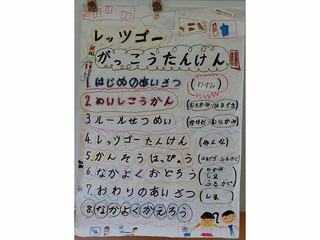 レッツゴー
がっこうたんけん
1 はじめのあいさつ
2.めいしこうかん
3 ルールせつめい
4.レッツゴー たんけん (みんな)
5.かんそう はっぴょう
6.なかよくおどろう
7.おわりのあいさつ (しま)
8.なかよくかえろう